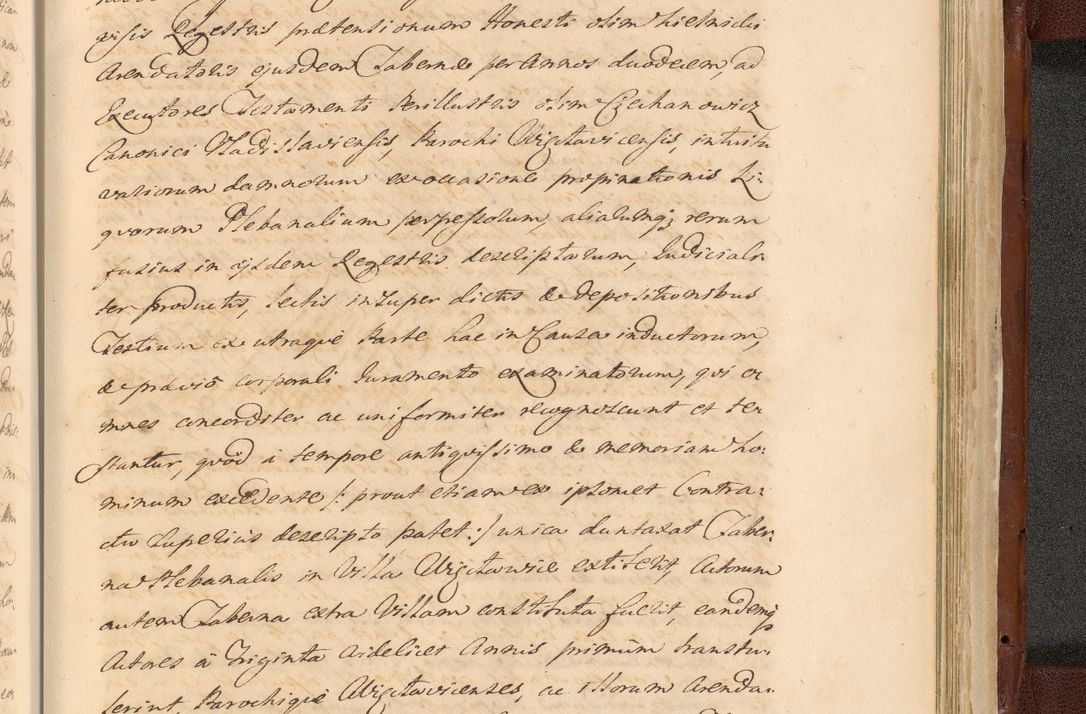 visis Regestris prætensionum Honesti olim
Arendatoris ejusdem Tabernæ per Annos duodecem, ad
Executores Testamenti Perillustris olim Czechanowicz
Canonici Vladislaviensis, Parochi intuitu
variorum damnorum ex occasione propinationis Li-
quorum Plebanalium perpessorum, aliarumq; rerum
fusius in ijsdem Regestris descriptarum, Judiciali-
ter productis, lectis insuper dictis & depositionibus
Testium ex utraque Parte hac in Causa inductorum,
& prævio corporali Juramento examinatorum, qvi o-
mnes concorditer ac uniformiter recognoscunt et te-
stantur, qvòd à tempore antiqvissimo & memoriam ho-
minum excedente /: prout etiam ex ipsomet Contra-
ctu superius descripto patet :/ unica duntaxat Taber-
na Plebanalis in Villa extiterit, Actorum
autem Taberna extra Villam constituta fuerit, eandemq;
Actores à Triginta videlicet Annis primùm transtu-
lerint, Parochique ac illorum Arenda-